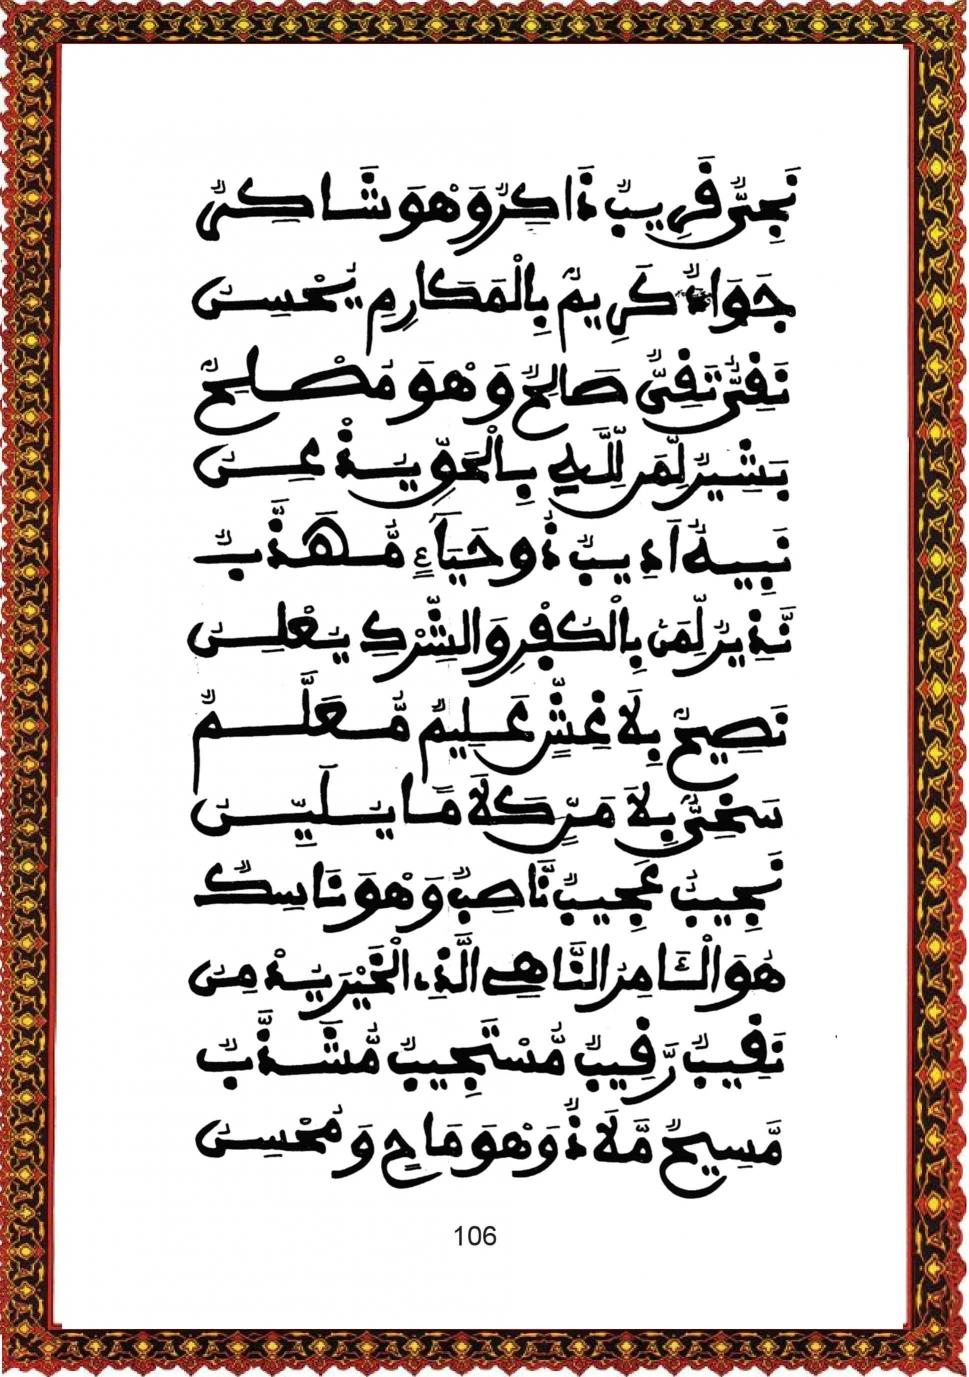 نَجِىٌّ قَرِيبٌ ذَاكِرٌ وَهْوَ شَاكِرٌ
جَوَادٌ كَرِيمٌ بِالْمَكَارِمِ يُحْسِنُ
نَقِىٌّ تَقِىٌّ صَالِحٌ وَهْوَ مُصْلِحٌ
بَشِيرٌ لِّمَن لِّلَّهِ بِالْحَقِّ يَذْعِنُ
نَبِيهٌ اَدِيبٌ ذُو حَيَآءٍ مُّهَذَّبٌ
نَّذِيرٌ لِّمَنْ بِالْكُفْرِ وَالشِّرْكِ يُعْلِنُ
نَصِيحٌ بِلَا غِشٍّ عَلِيمٌ مُّعَلَّمٌ
سَخِىٌّ بِلَا مَنٍّ كَلَا مَا يُلَيِّنُ
نَجِيبٌ عَجِيبٌ نَّاصِبٌ وَهْوَ نَاسِكٌ
هُوَ الْـَٔامِرُ النَّاهِى الَّذِى الْخَيْرَ يَذْمِنُ
نَقِيبٌ رَّقِيبٌ مُّسْتَجِيبٌ مُّشَذَّبٌ
مَّسِيحٌ مَّلَاذٌ وَهْوَ مَاحٍ وَمُحْسِنُ
106